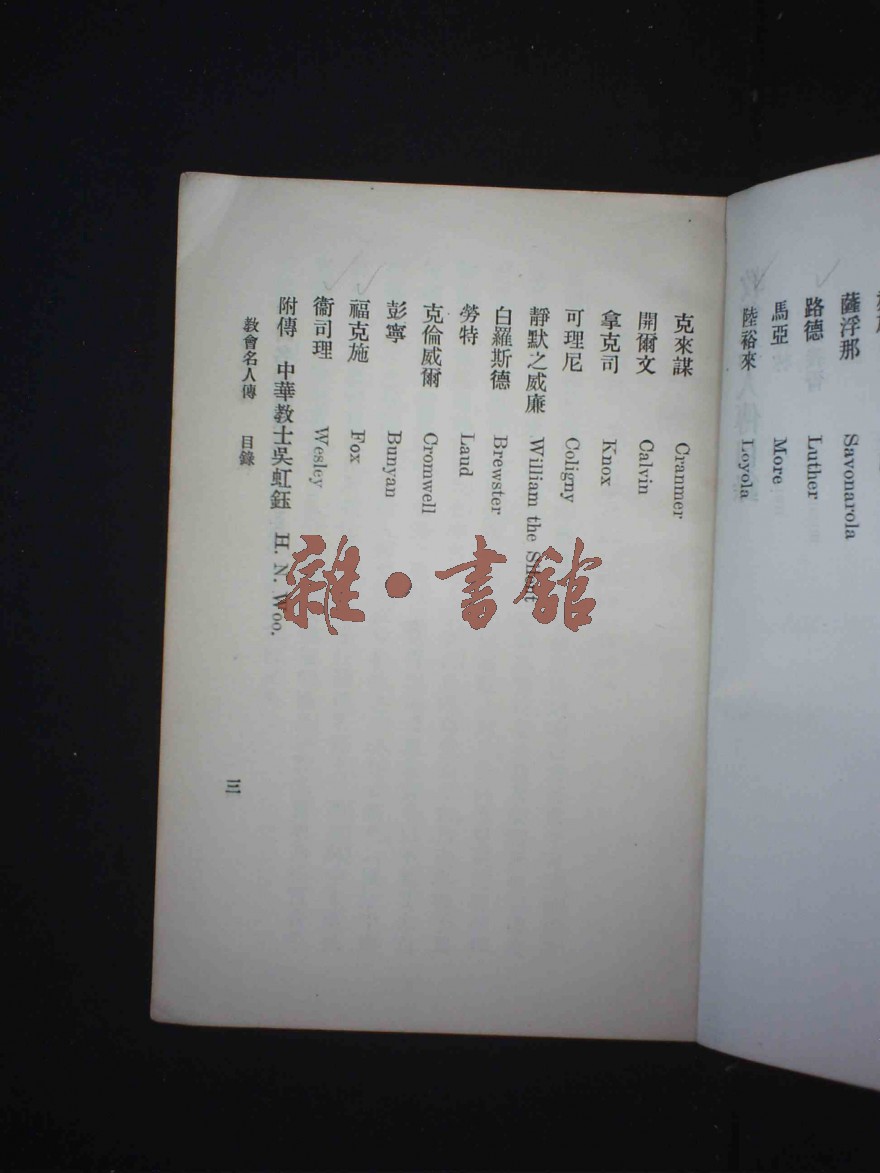 薩浮那 Savonarola
路德 Luther
馬亞 More
陸裕來 Loyola
克來謀 Cranmer
開爾文 Calvin
拿克司 Knox
可理尼 Coligny
靜默之威廉 William the Silent
白羅斯德 Brewster
勞特 Laud
克倫威爾 Cromwell
彭寧 Bunyan
福克施 Fox
衞司理 Wesley
附傳 中華教士吳虹鈺 H. N. Woo.
教會名人傳 目錄
三
雜·書館